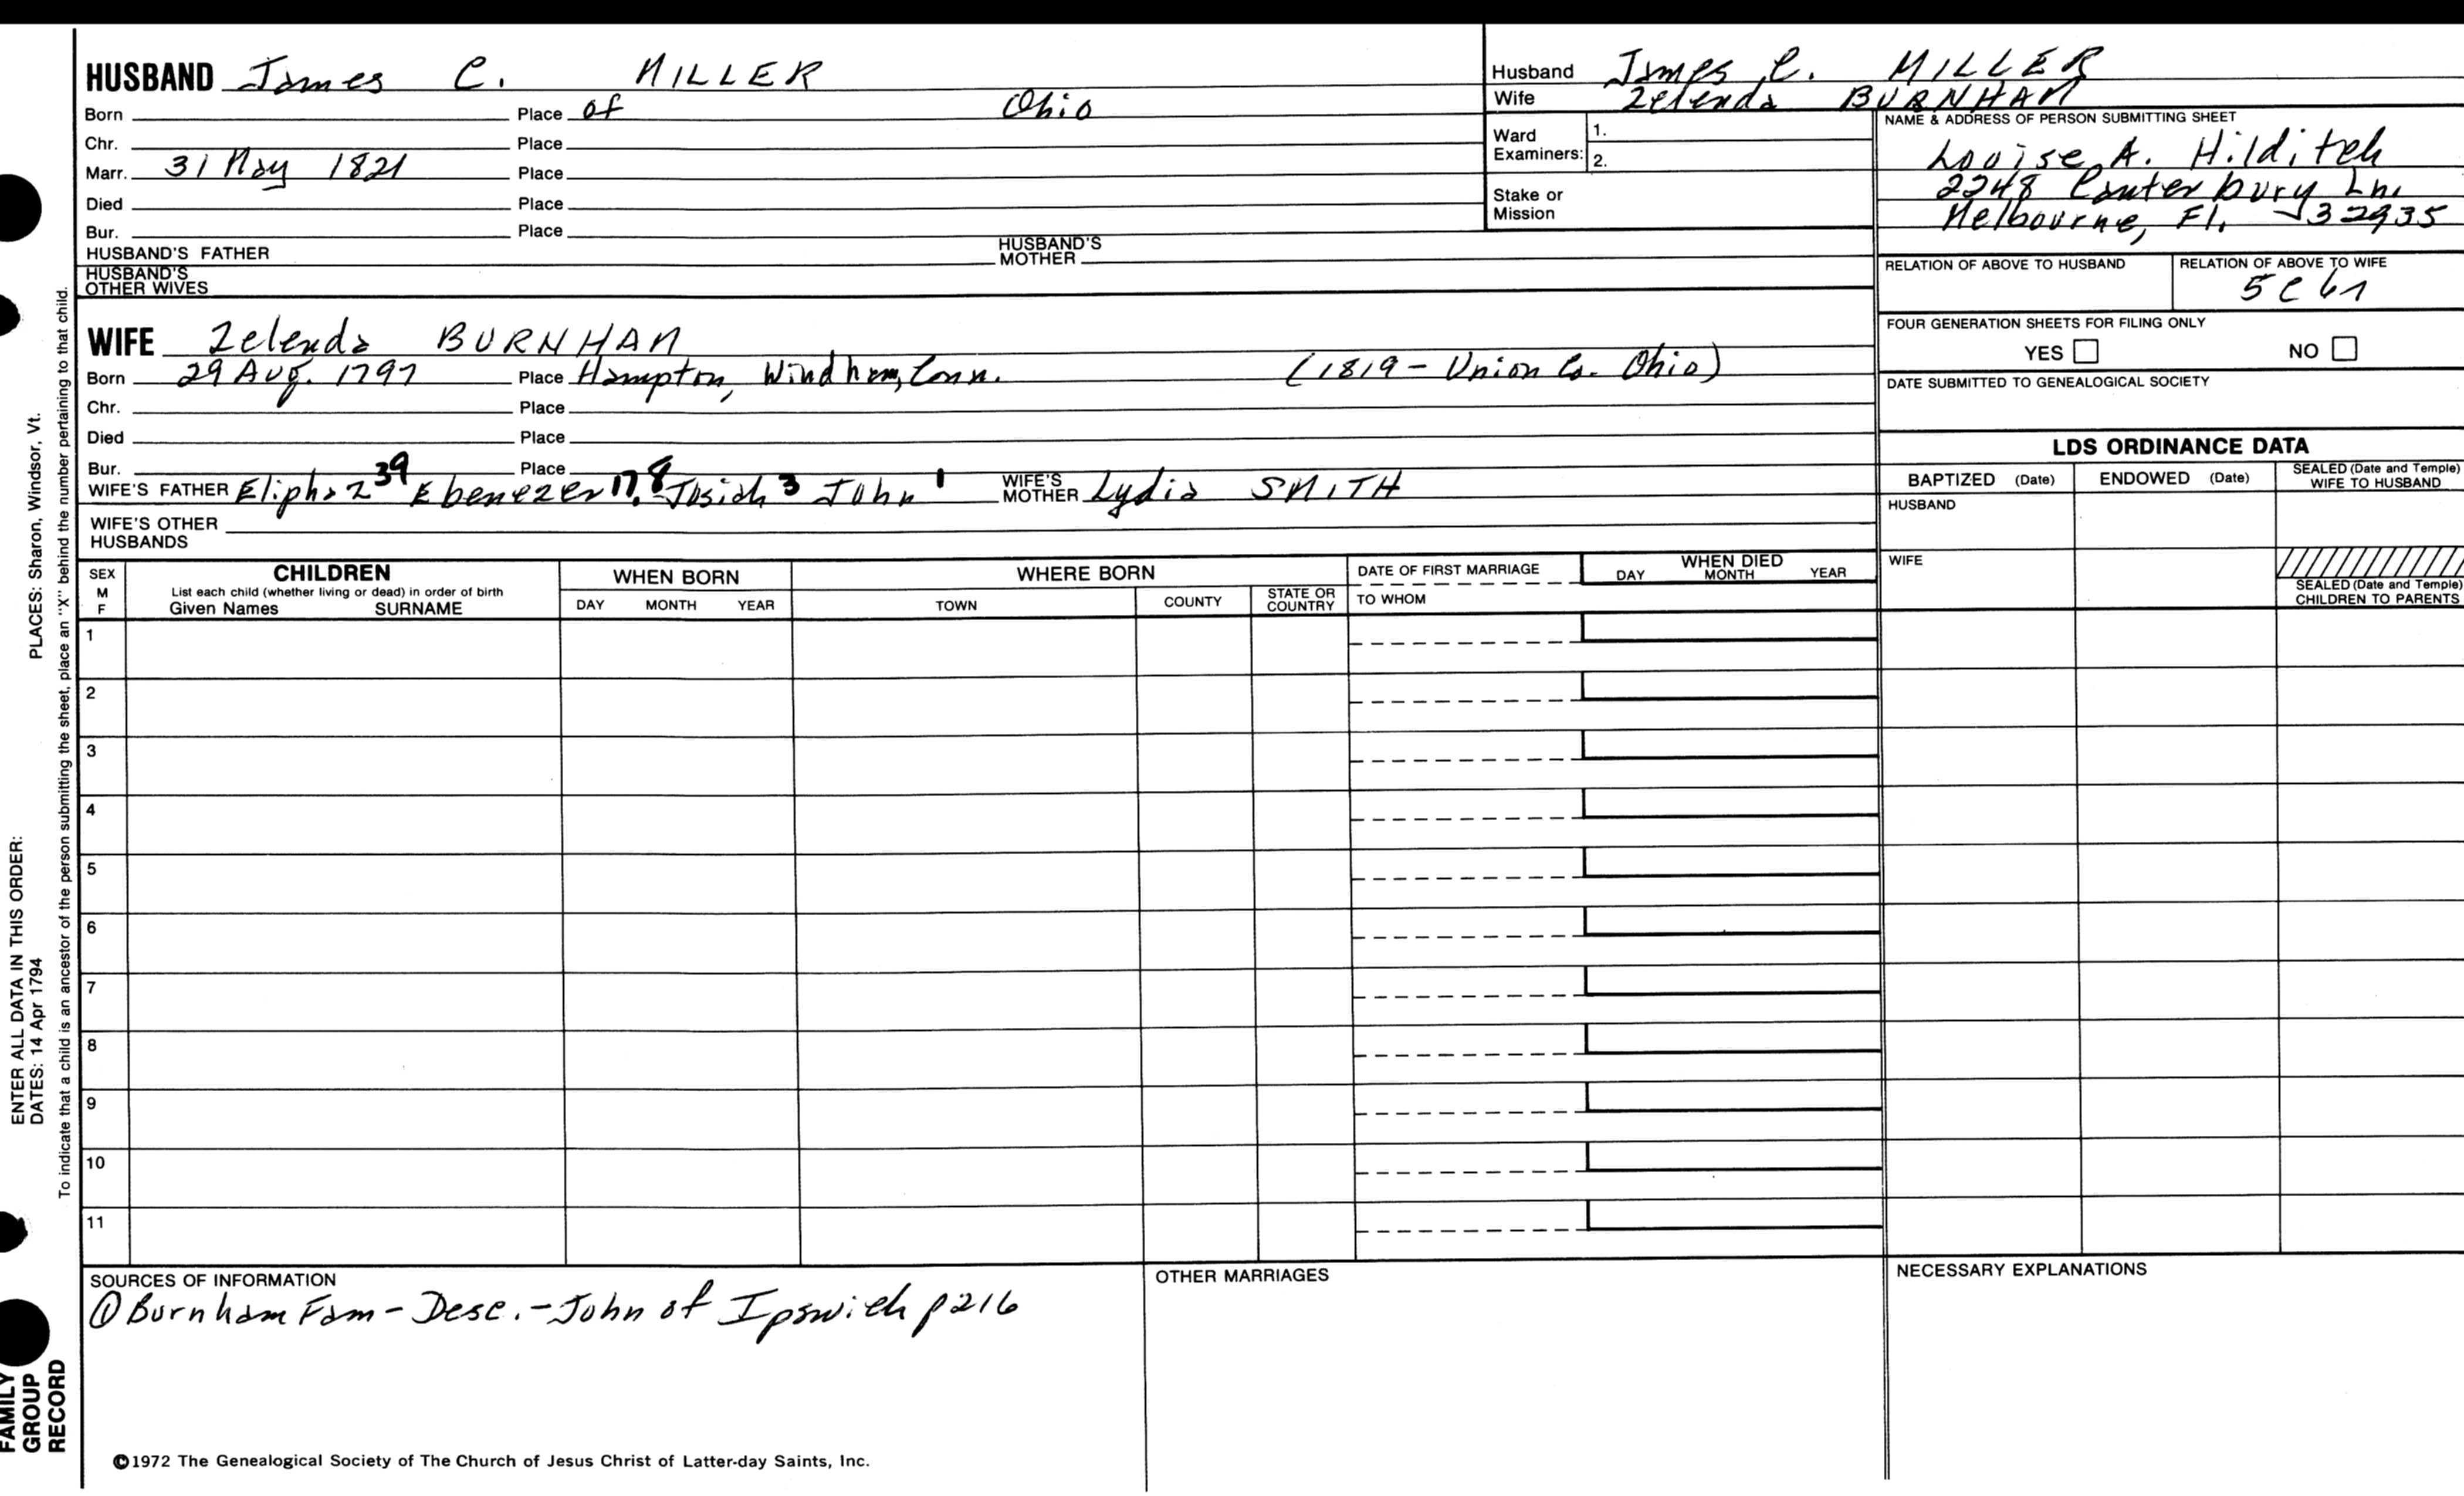 HUSBAND James C. MILLER
Born Place of Ohio
Chr. Place
Marr. 31 May 1821 Place
Died Place
Bur. Place
HUSBAND'S FATHER HUSBAND'S MOTHER
HUSBAND'S OTHER WIVES
Husband James C. MILLER
Wife Zelenda BURNHAM
Ward Examiners: 1.
2.
Stake or Mission
NAME & ADDRESS OF PERSON SUBMITTING SHEET
Louise A. Hilditch
2248 Canterbury Ln.
Melbourne, Fl. 32935
RELATION OF ABOVE TO HUSBAND RELATION OF ABOVE TO WIFE
5C
FOUR GENERATION SHEETS FOR FILING ONLY
YES NO
DATE SUBMITTED TO GENEALOGICAL SOCIETY
WIFE Zelenda BURNHAM
Born 29 Aug. 1797 Place Hampton, Windham, Conn. (1819 - Union Co. Ohio)
Chr. Place
Died Place
Bur. Place
WIFE'S FATHER Eliphaz 39 Ebenezer 17, 8 Josiah 3 John 1 WIFE'S MOTHER Lydia SMITH
WIFE'S OTHER HUSBANDS
LDS ORDINANCE DATA
BAPTIZED (Date) ENDOWED (Date) SEALED (Date and Temple) WIFE TO HUSBAND
HUSBAND
WIFE
SEALED (Date and Temple) CHILDREN TO PARENTS
SEX M F
CHILDREN
List each child (whether living or dead) in order of birth
Given Names SURNAME
WHEN BORN
DAY MONTH YEAR
WHERE BORN
TOWN COUNTY STATE OR COUNTRY
DATE OF FIRST MARRIAGE
TO WHOM
WHEN DIED
DAY MONTH YEAR
1
2
3
4
5
6
7
8
9
10
11
SOURCES OF INFORMATION
① Burnham Fam - Desc. - John of Ipswich p 216
OTHER MARRIAGES
NECESSARY EXPLANATIONS
©1972 The Genealogical Society of The Church of Jesus Christ of Latter-day Saints, Inc.
FAMILY GROUP RECORD
ENTER ALL DATA IN THIS ORDER:
DATES: 14 Apr 1794 PLACES: Sharon, Windsor, Vt.
To indicate that a child is an ancestor of the person submitting the sheet, place an "X" behind the number pertaining to that child.